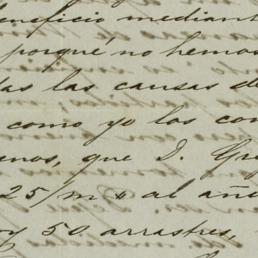 beneficio mediant
porqué no hemos
las causas de
como yo los con
enos, que D. Gre
25/m $ al año
50 arrastres,